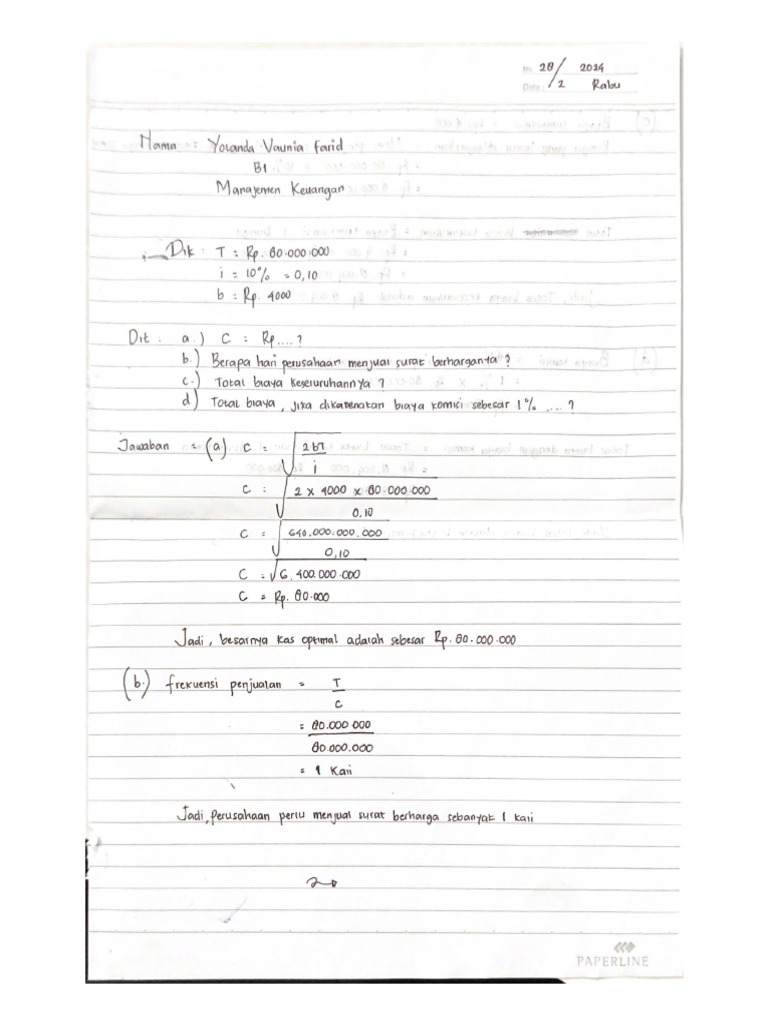 No. 28/2 2024
Date: Rabu
Nama : Yolanda Vaunia Farid
B1
Manajemen Keuangan
Dik : T = Rp. 80.000.000
i = 10% = 0,10
b = Rp. 4000
Dit : a.) C = Rp.....?
b.) Berapa hari perusahaan menjual surat berharganya ?
c.) Total biaya keseluruhannya ?
d) Total biaya, jika dikarenakan biaya komisi sebesar 1% ....?
Jawaban = (a) C = √2bT
i
C = √2 x 4000 x 80.000.000
0,10
C = √640.000.000.000
0,10
C = √6.400.000.000
C = Rp. 80.000
Jadi, besarnya kas optimal adalah sebesar Rp. 80.000.000
(b.) frekuensi penjualan = T
C
= 80.000.000
80.000.000
= 1 Kali
Jadi, perusahaan perlu menjual surat berharga sebanyak 1 kali
PAPERLINE